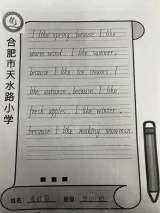 合肥市天水路小学
I like spring, because I like
warm wind. I like summer,
because I like ice cream. I
like autumn, because I like
fresh apples. I like winter,
because I like making snowman.
姓名
班级